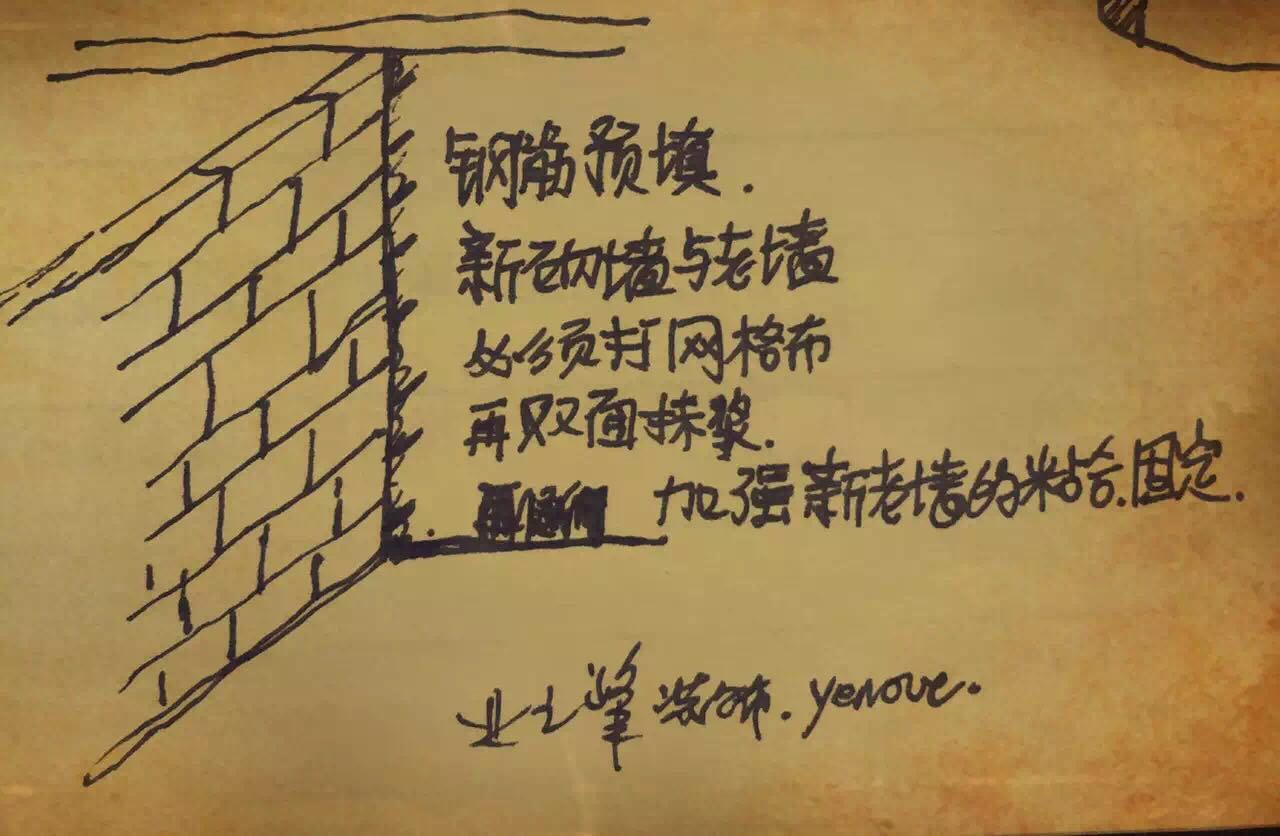 钢筋预填.
新砌墙与老墙
必须打网格布
再双面抹浆.
加强新老墙的粘合.固定.
业之峰装饰.yenove.